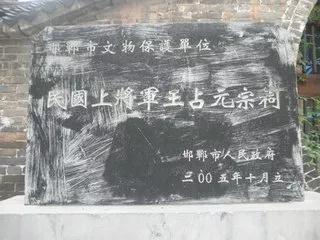 邯鄲市文物保護單位
民國上將軍王占元宗祠
邯鄲市人民政府
二00五年十月立